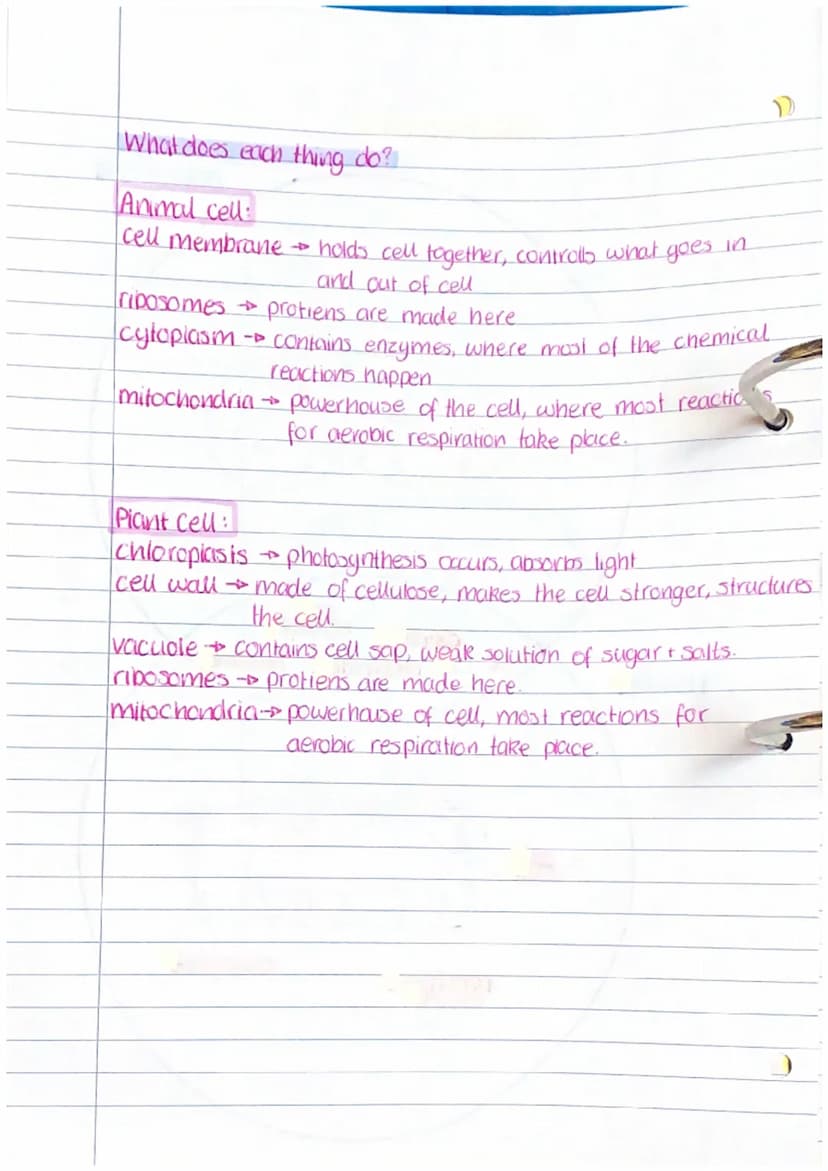 What does each thing do?
Animal cell:
cell membrane → holds cell together, controlls what goes in
and out of cell
ribosomes → protiens are made here
cytoplasm → contains enzymes, where most of the chemical
reactions happen
mitochondria → powerhouse of the cell, where most reactions
for aerobic respiration take place.
Plant cell:
chloroplasts → photosynthesis occurs, absorbs light
cell wall → made of cellulose, makes the cell stronger, structures
the cell.
vacuole → contains cell sap, weak solution of sugar + salts.
ribosomes → protiens are made here.
mitochondria → powerhouse of cell, most reactions for
aerobic respiration take place.